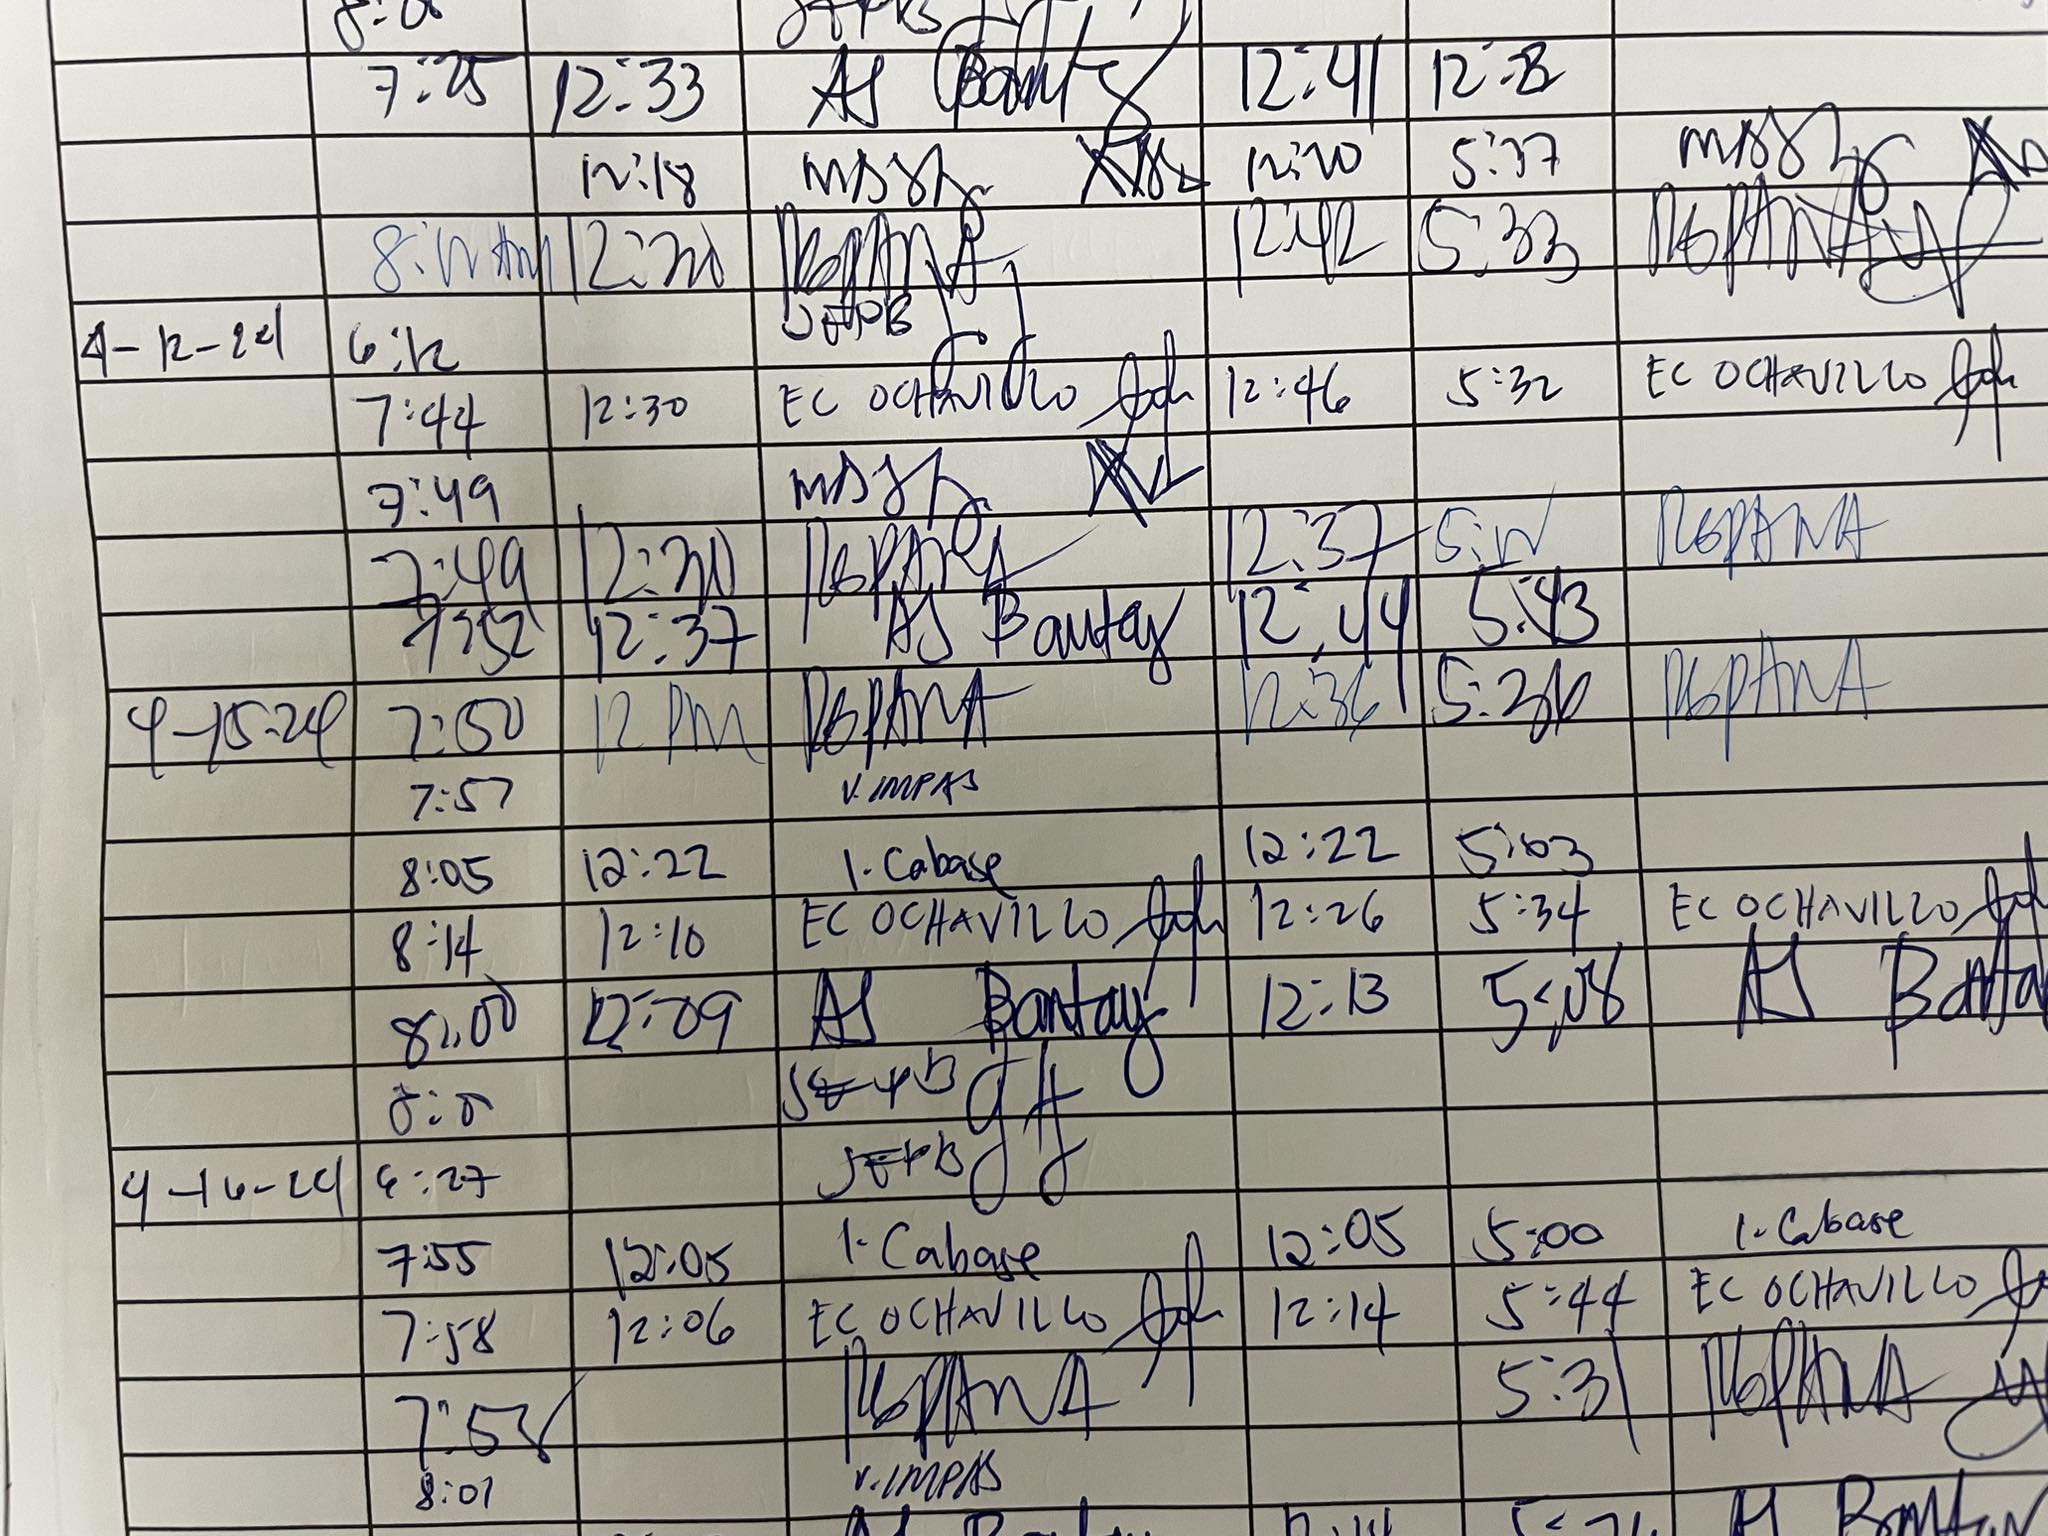 7:25 12:33 AS Bantay 12:41
12:18 12:20 5:37
12:30 RGPANA 12:42 5:33 RGPANA
4-12-24 6:12 JEPB
7:44 12:30 EC OCHAVILLO 12:46 5:32 EC OCHAVILLO
7:49
7:49 12:30 RGPANA 12:37 RGPANA
7:52 12:37 AS Bantay 12:44 5:43
4-15-24 7:50 12 PM RGPANA 12:36 5:36 RGPANA
7:57 V. IMPAS
8:05 12:22 I. Cabase 12:22 5:03
8:14 12:10 EC OCHAVILLO 12:26 5:34 EC OCHAVILLO
8:00 12:09 AS Bantay 12:13 5:08 AS Banta
JEPB
4-16-24 6:27 JEPB
7:55 12:05 I. Cabase 12:05 5:00 I. Cabase
7:58 12:06 EC OCHAVILLO 12:14 5:44 EC OCHAVILLO
7:58 RGPANA 5:31 RGPANA
8:01 V. IMPAS
AS Bantay 12:14 AS Bantay